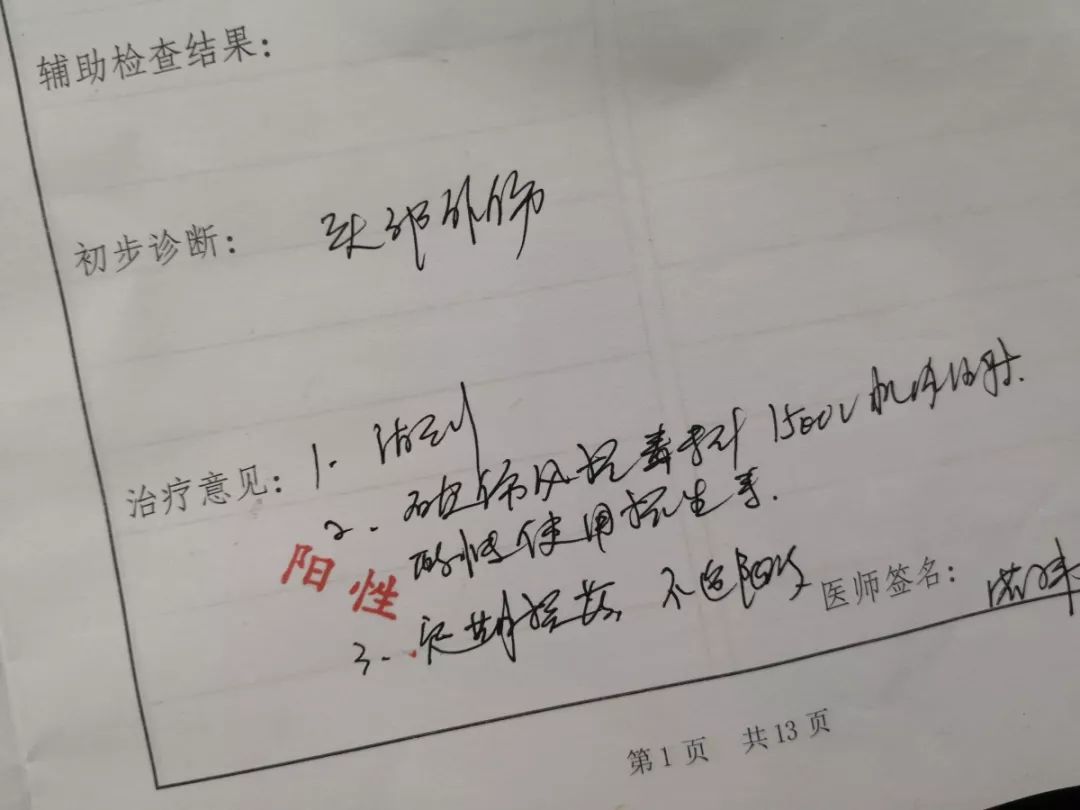 辅助检查结果：
初步诊断： 头部外伤
治疗意见： 1. 清创
2. 破伤风抗毒素针 1500U 肌肉注射.
酌情使用抗生素.
阳性
3. 定期换药, 不适随诊
医师签名：
第 1 页 共 13 页